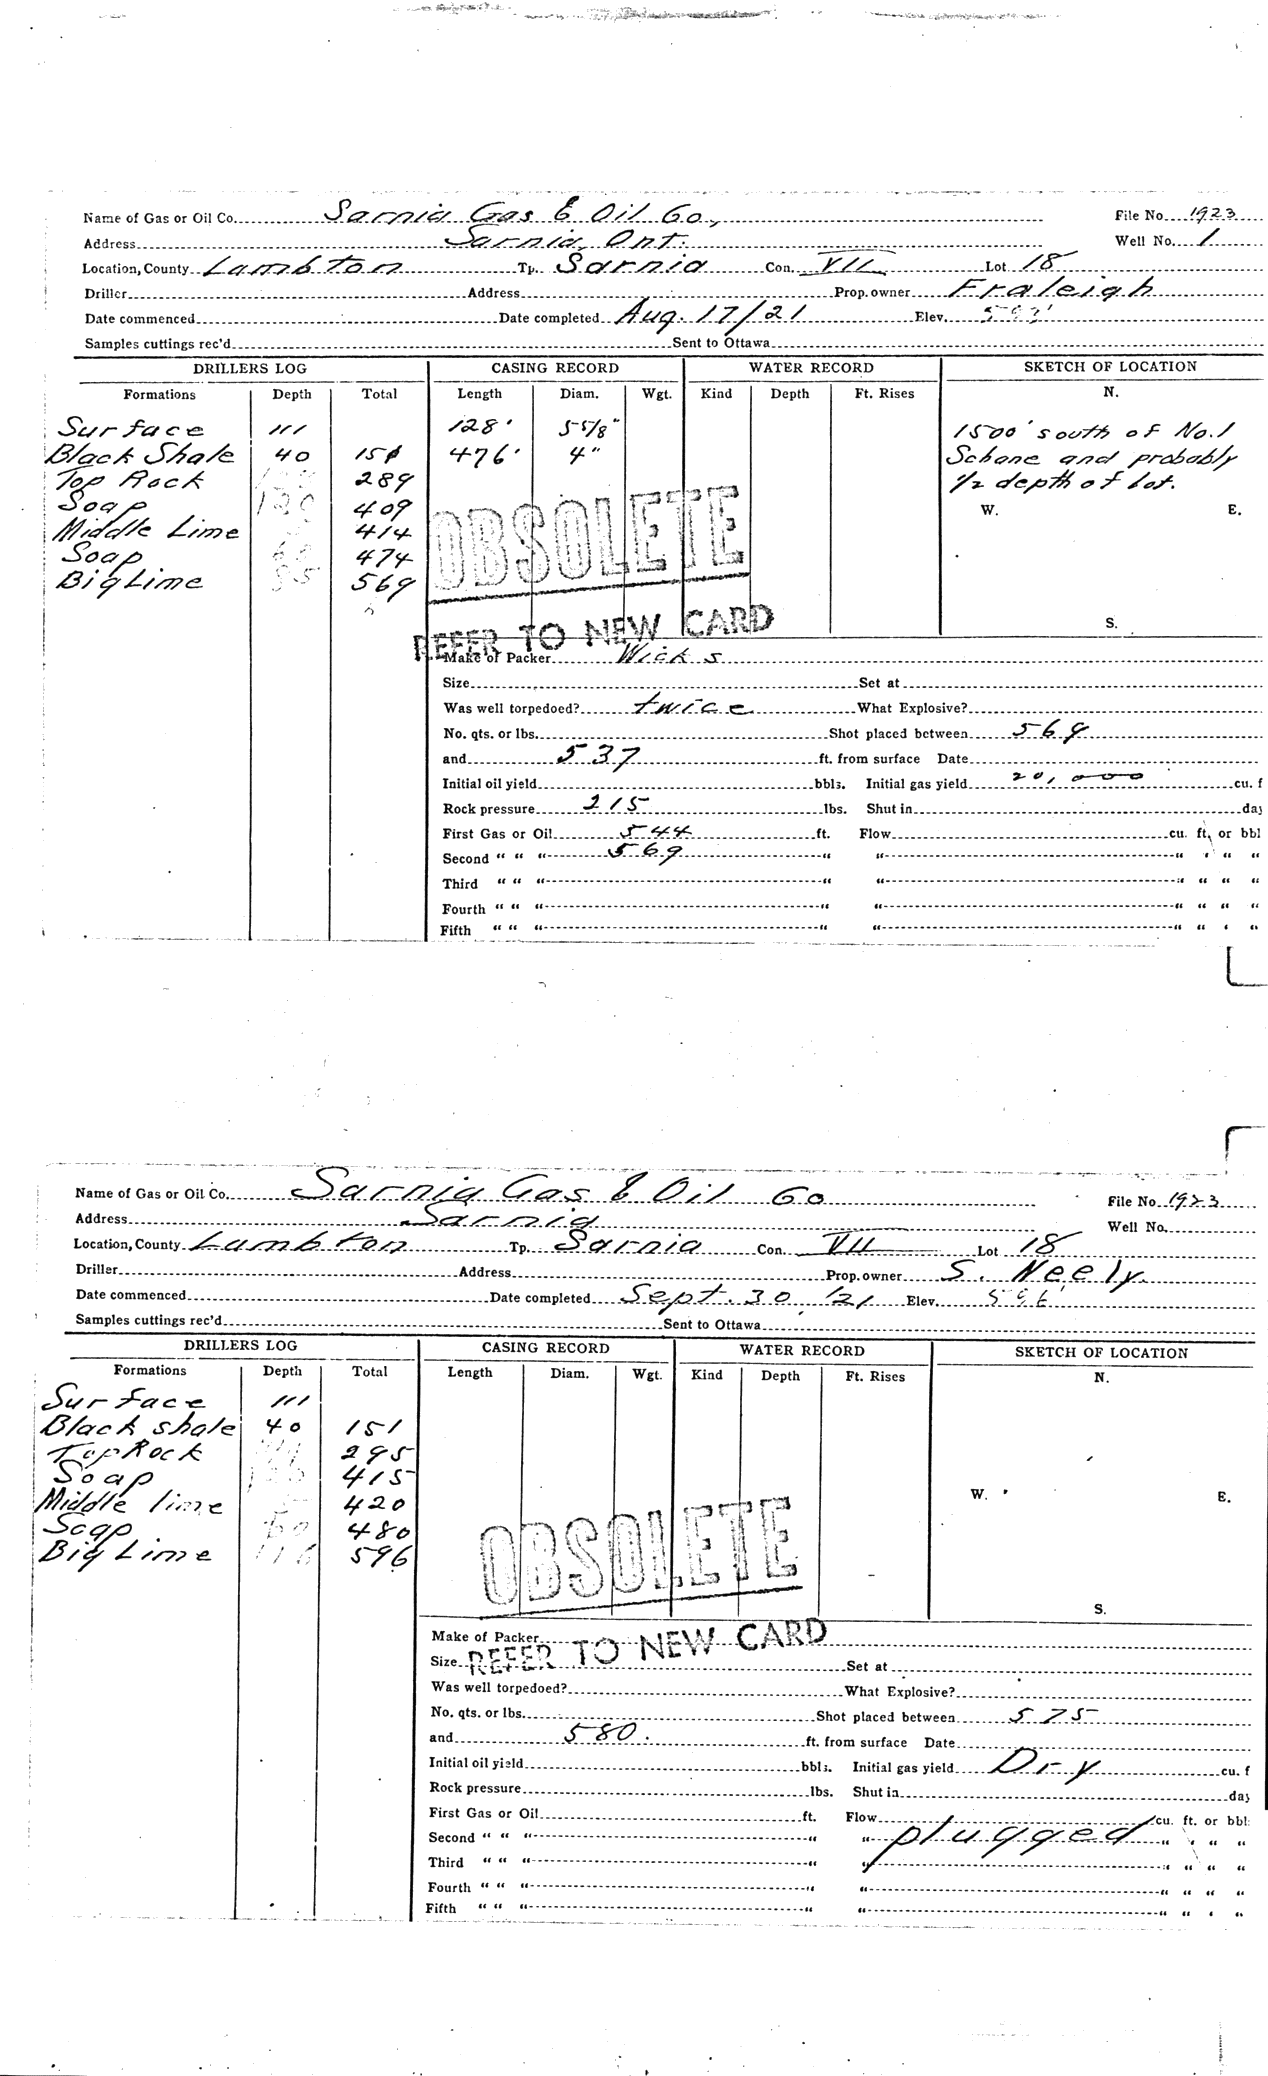 Name of Gas or Oil Co. Sarnia Gas & Oil Co., File No. 1923
Address Sarnia, Ont. Well No. 1
Location, County Lambton Tp. Sarnia Con. VII Lot 18
Driller Address Prop. owner Fraleigh
Date commenced Date completed Aug. 17/21 Elev.
Samples cuttings rec'd Sent to Ottawa
DRILLERS LOG CASING RECORD WATER RECORD SKETCH OF LOCATION
Formations Depth Total Length Diam. Wgt. Kind Depth Ft. Rises N.
Surface 111 128' 5 5/8"
Black Shale 40 151 476' 4"
Top Rock 289
Soap 120 409
Middle Lime 414
Soap 60 474
Big Lime 569
1500' south of No. 1
Schane and probably
1/2 depth of lot.
W. E.
S.
OBSOLETE
REFER TO NEW CARD
Make of Packer Wicks
Size Set at
Was well torpedoed? twice What Explosive?
No. qts. or lbs. Shot placed between 569
and 537 ft. from surface Date
Initial oil yield bbls. Initial gas yield 20,000 cu. f
Rock pressure 215 lbs. Shut in day
First Gas or Oil 544 ft. Flow cu. ft. or bbl
Second " " " 569 " " " " " "
Third " " " " " " " " "
Fourth " " " " " " " " "
Fifth " " " " " " " " "
Name of Gas or Oil Co. Sarnia Gas & Oil Co File No. 1923
Address Sarnia Well No.
Location, County Lambton Tp. Sarnia Con. VII Lot 18
Driller Address Prop. owner S. Neely
Date commenced Date completed Sept. 30 '21 Elev. 596'
Samples cuttings rec'd Sent to Ottawa
DRILLERS LOG CASING RECORD WATER RECORD SKETCH OF LOCATION
Formations Depth Total Length Diam. Wgt. Kind Depth Ft. Rises N.
Surface 111
Black shale 40 151
Top Rock 295
Soap 120 415
Middle lime 420
Soap 60 480
Big Lime 116 596
W. E.
S.
OBSOLETE
REFER TO NEW CARD
Make of Packer
Size Set at
Was well torpedoed? What Explosive?
No. qts. or lbs. Shot placed between 575
and 580. ft. from surface Date
Initial oil yield bbls. Initial gas yield Dry cu. f
Rock pressure lbs. Shut in day
First Gas or Oil ft. Flow cu. ft. or bbl
Second " " " " " plugged " " " "
Third " " " " " " " " "
Fourth " " " " " " " " "
Fifth " " " " " " " " "